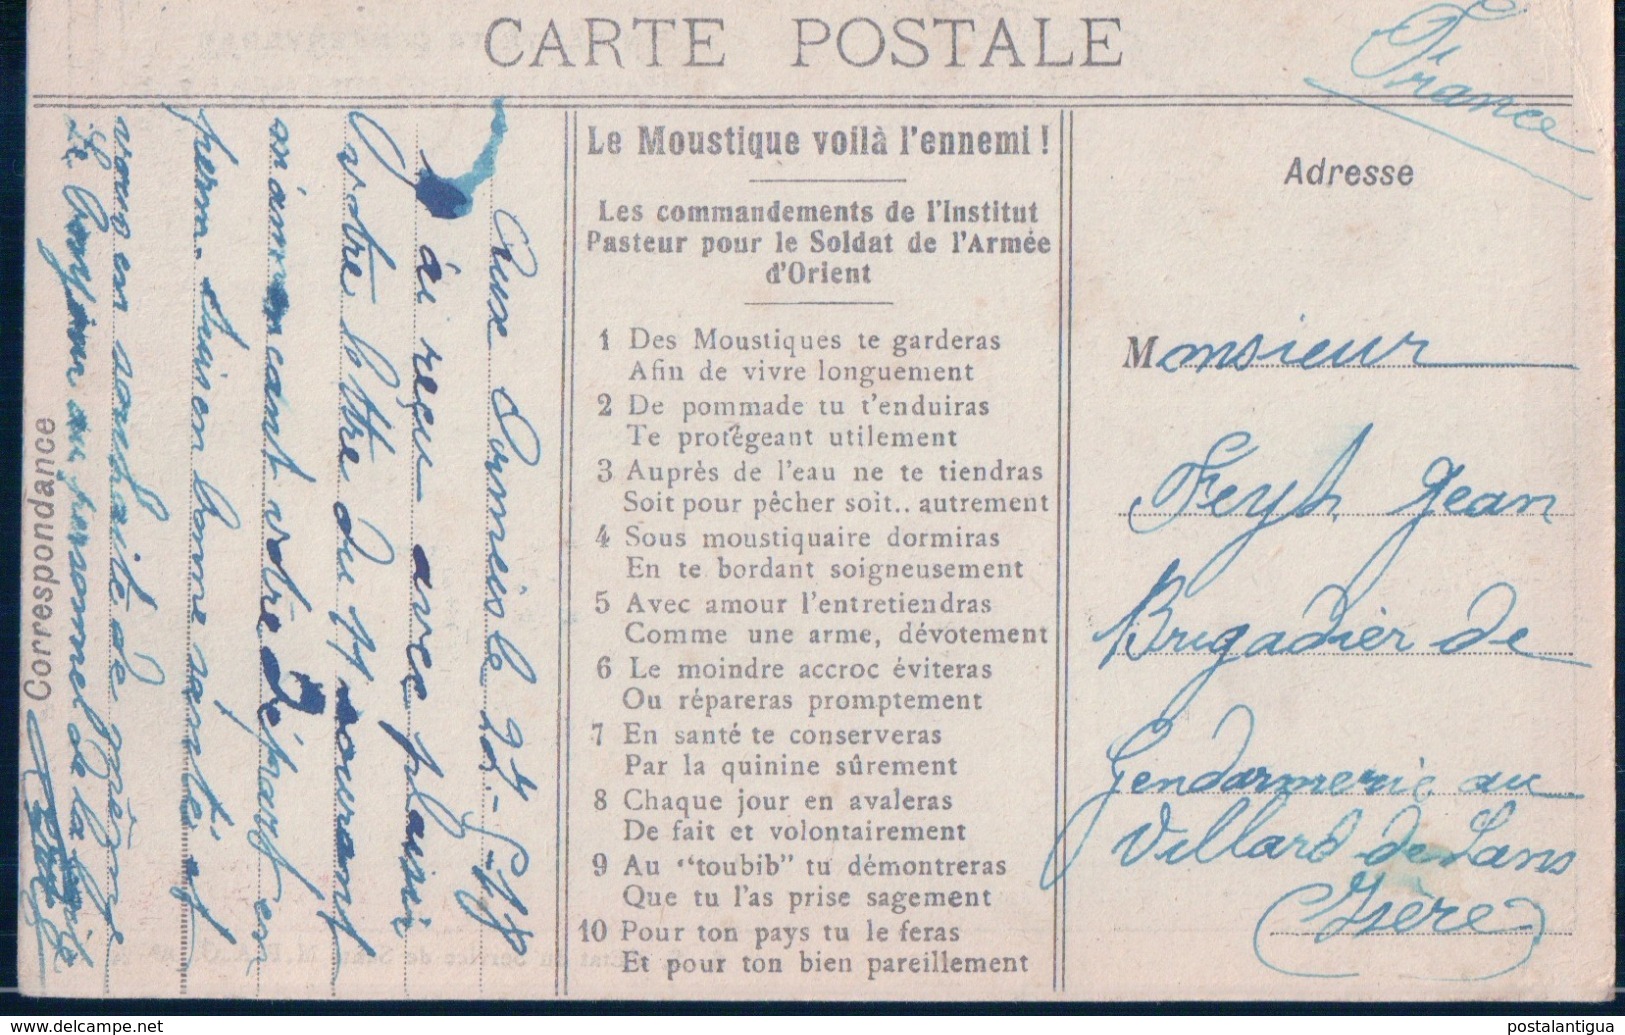 CARTE POSTALE
France
Correspondance
Aux Armées le 24-5-18
J'ai reçu avec plaisir
votre lettre du 11 courant
m'annonçant votre Départ en
perm. suis en bonne santé et
vous en souhaite de même
Le Moustique voilà l'ennemi !
Les commandements de l'Institut
Pasteur pour le Soldat de l'Armée
d'Orient
1 Des Moustiques te garderas
Afin de vivre longuement
2 De pommade tu t'enduiras
Te protégeant utilement
3 Auprès de l'eau ne te tiendras
Soit pour pêcher soit.. autrement
4 Sous moustiquaire dormiras
En te bordant soigneusement
5 Avec amour l'entretiendras
Comme une arme, dévotement
6 Le moindre accroc éviteras
Ou répareras promptement
7 En santé te conserveras
Par la quinine sûrement
8 Chaque jour en avaleras
De fait et volontairement
9 Au "toubib" tu démontreras
Que tu l'as prise sagement
10 Pour ton pays tu le feras
Et pour ton bien pareillement
Adresse
Monsieur
Feyh Jean
Brigadier de
Gendarmerie au
Villard de Lans
(Isère)
delcampe.net
postalantigua